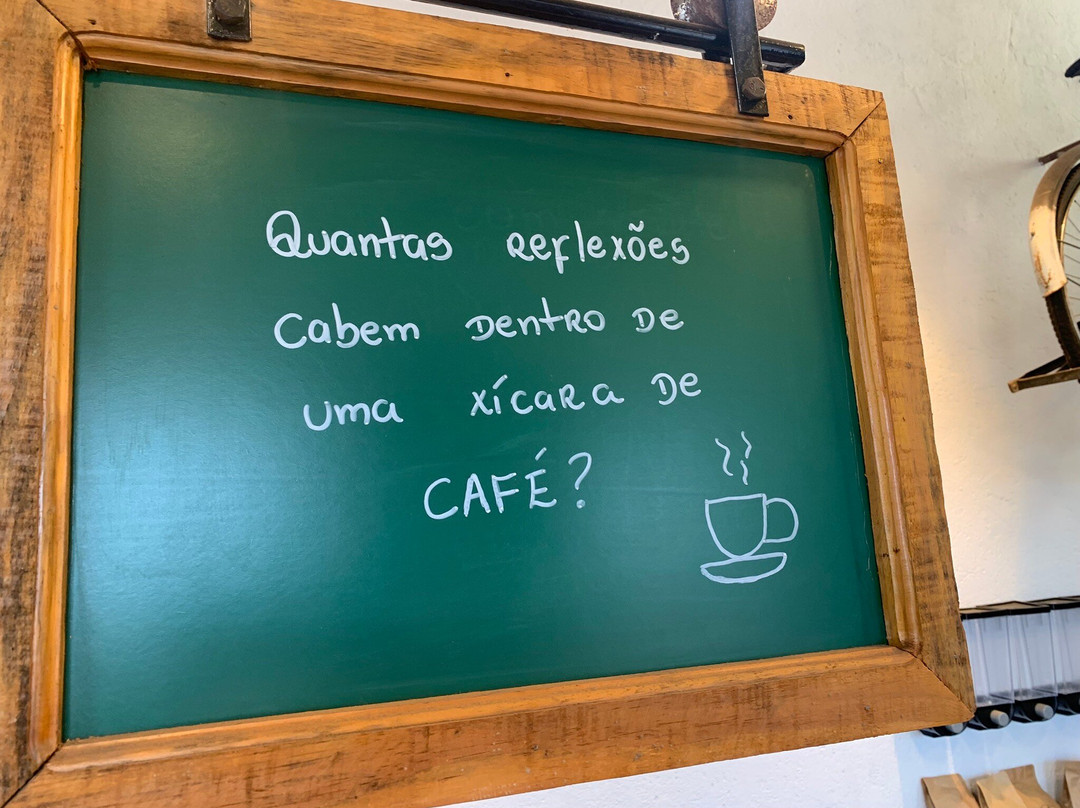 Quantas reflexões
cabem dentro de
uma xícara de
CAFÉ?